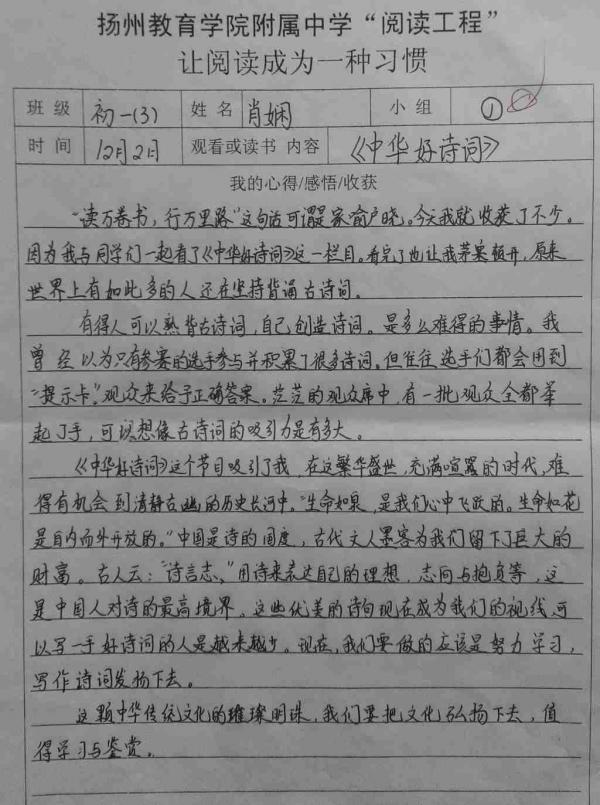 扬州教育学院附属中学“阅读工程”
让阅读成为一种习惯
班级 初一(3) 姓名 肖娴 小组 ①
时间 12月2日 观看或读书 内容 《中华好诗词》
我的心得/感悟/收获
“读万卷书，行万里路”这句话可谓是家喻户晓。今天我就收获了不少。
因为我与同学们一起看了《中华好诗词》这一栏目。看完了也让我茅塞顿开，原来
世界上有如此多的人还在坚持背诵古诗词。
有得人可以熟背古诗词，自己创造诗词。是多么难得的事情。我
曾经以为只有参赛的选手参与并积累了很多诗词。但往往选手们都会用到
“提示卡”。观众来给予正确答案。茫茫的观众席中，有一批观众全都举
起了手，可以想像古诗词的吸引力是有多大。
《中华好诗词》这个节目吸引了我，在这繁华盛世，充满喧嚣的时代，难
得有机会到清静古幽的历史长河中。“生命如泉，是我们心中飞跃的。生命如花
是自内而外开放的。”中国是诗的国度，古代文人墨客为我们留下了巨大的
财富。古人云：“诗言志、”用诗来表达自己的理想，志向与抱负等，这
是中国人对诗的最高境界。这些优美的诗句现在成为我们的视线，可
以写一手好诗词的人是越来越少。现在，我们要做的应该是努力学习，
写作诗词发扬下去。
这颗中华传统文化的璀璨明珠，我们要把文化弘扬下去，值
得学习与鉴赏。